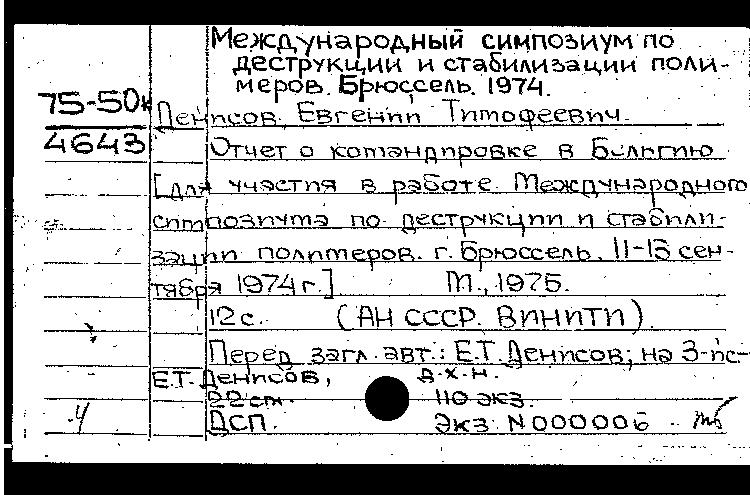 Международный симпозиум по
деструкции и стабилизации поли-
меров. Брюссель. 1974.
75-50к
4643
Денисов, Евгений Тимофеевич.
Отчет о командировке в Бельгию
[для участия в работе Международного
симпозиума по деструкции и стабили-
зации полимеров. г. Брюссель. 11-13 сен-
тября 1974 г.] М., 1975.
12 с. (АН СССР. ВИНИТИ).
Перед загл. авт.: Е.Т. Денисов; на 3-й с-
Е.Т. Денисов, д.х.н.
22 см. 110 экз.
ДСП. Экз. N 000006